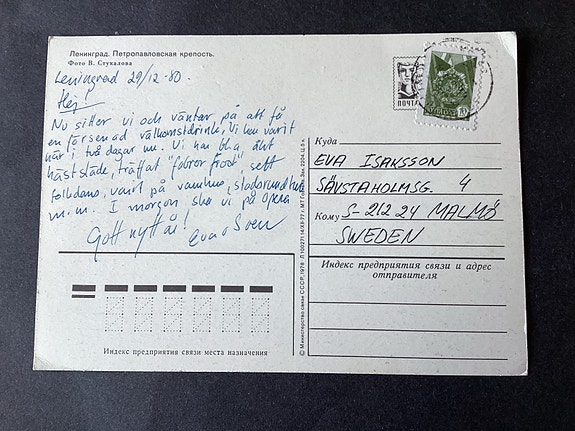 Ленинград. Петропавловская крепость.
Фото В. Стукалова
Leningrad 29/12-80.
Hej!
Nu sitter vi och väntar på att få
en försenad välkomstdrink, vi har varit
här i två dagar nu. Vi har bl.a. åkt
hästsläde, träffat "farbror frost", sett
folkdans, varit på varuhus, stadsrundtur
m.m. I morgon ska vi på opera
Gott nytt år!
Eva o Sven
ПОЧТА
10
Куда
EVA ISAKSSON
SÄVSTAHOLMSG. 4
Кому
S-212 24 MALMÖ
SWEDEN
Индекс предприятия связи и адрес
отправителя
Индекс предприятия связи места назначения
© Министерство связи СССР, 1978